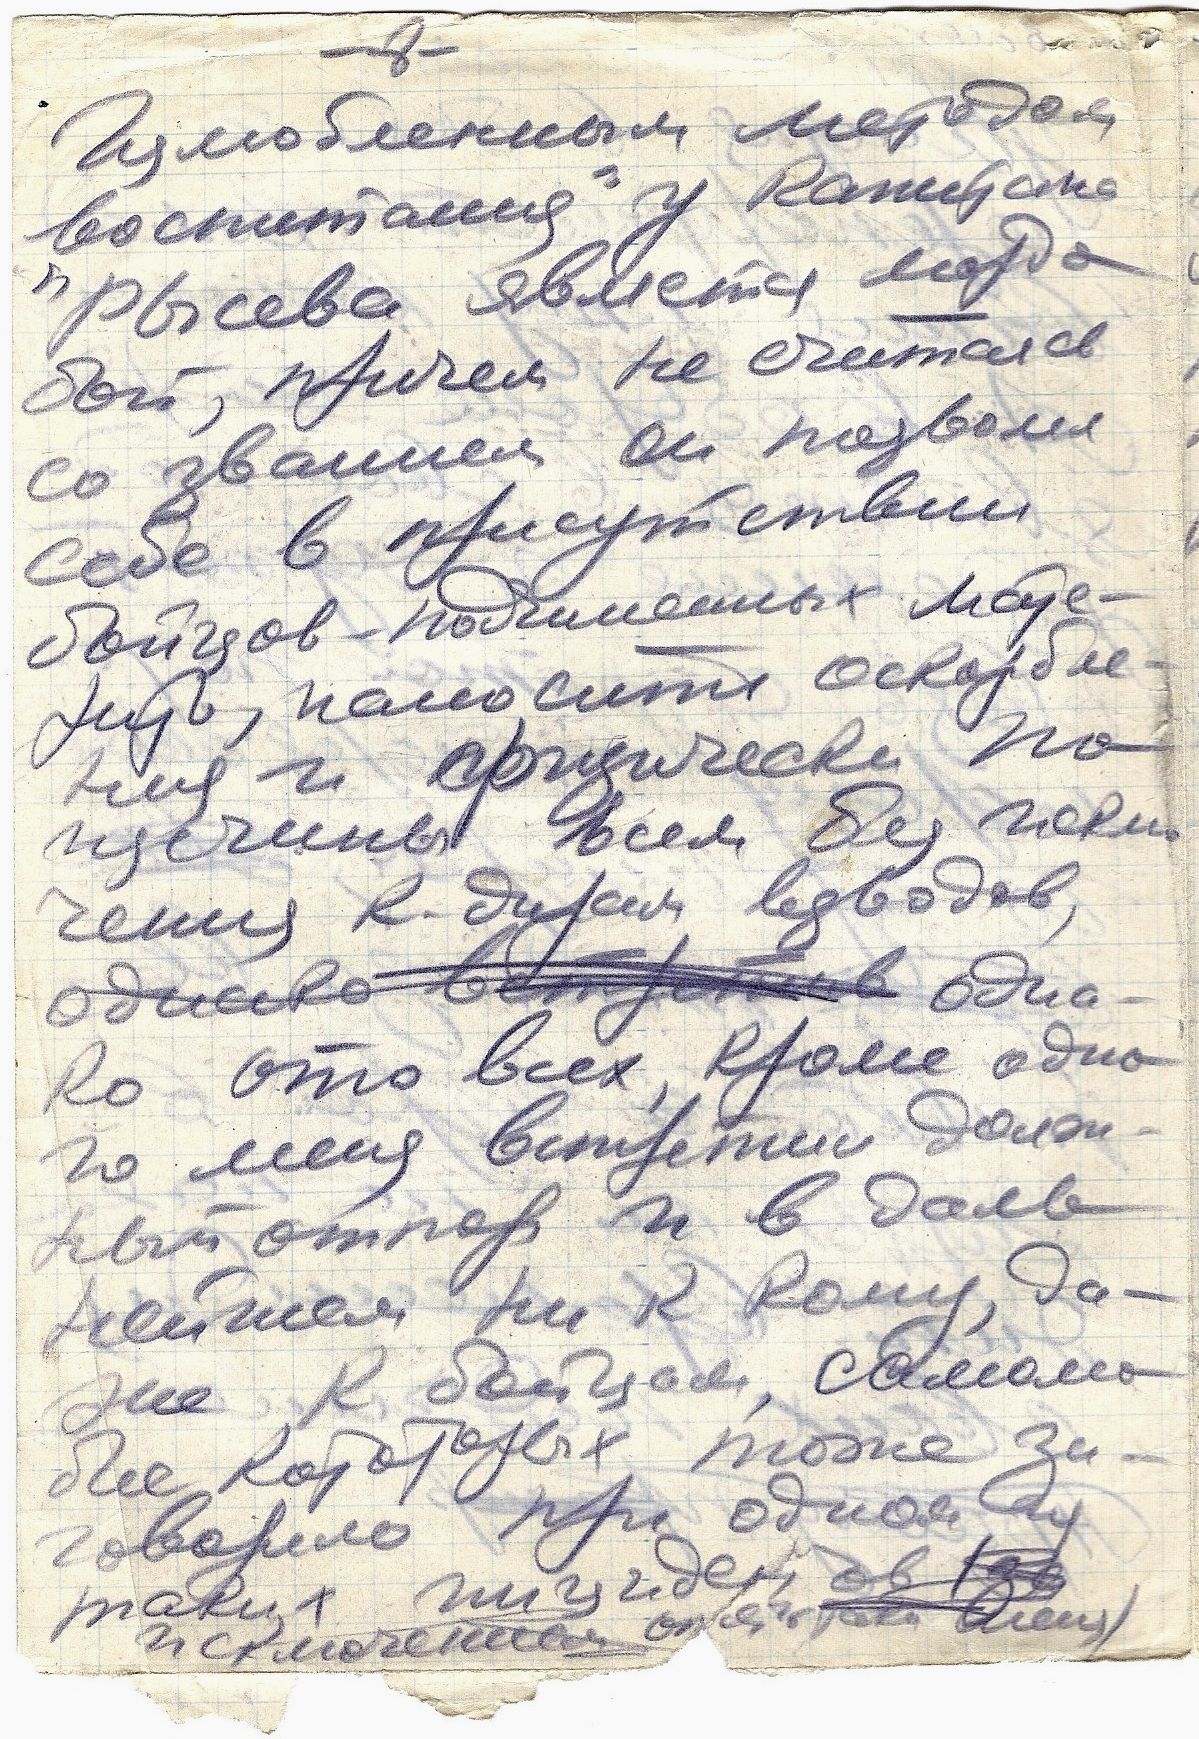 -8-
Излюбленным методом
воспитания" у капитана
"Рысева является мордо
бой, причем не считаясь
со званием он позволял
себе в присутствии
бойцов-подчиненных мате-
рить, наносить оскорбле-
ния и физически по
щечины всем без исклю
чения к-дирам взводов,
однако встретив одна-
ко ото всех, кроме одно
го меня встретил долж-
ный отпор и в даль
нейшем ни к кому, да-
же к бойцам, самолю
бие которых тоже за-
говорило при одном из
таких инцидентов
исключением опять таки меня)